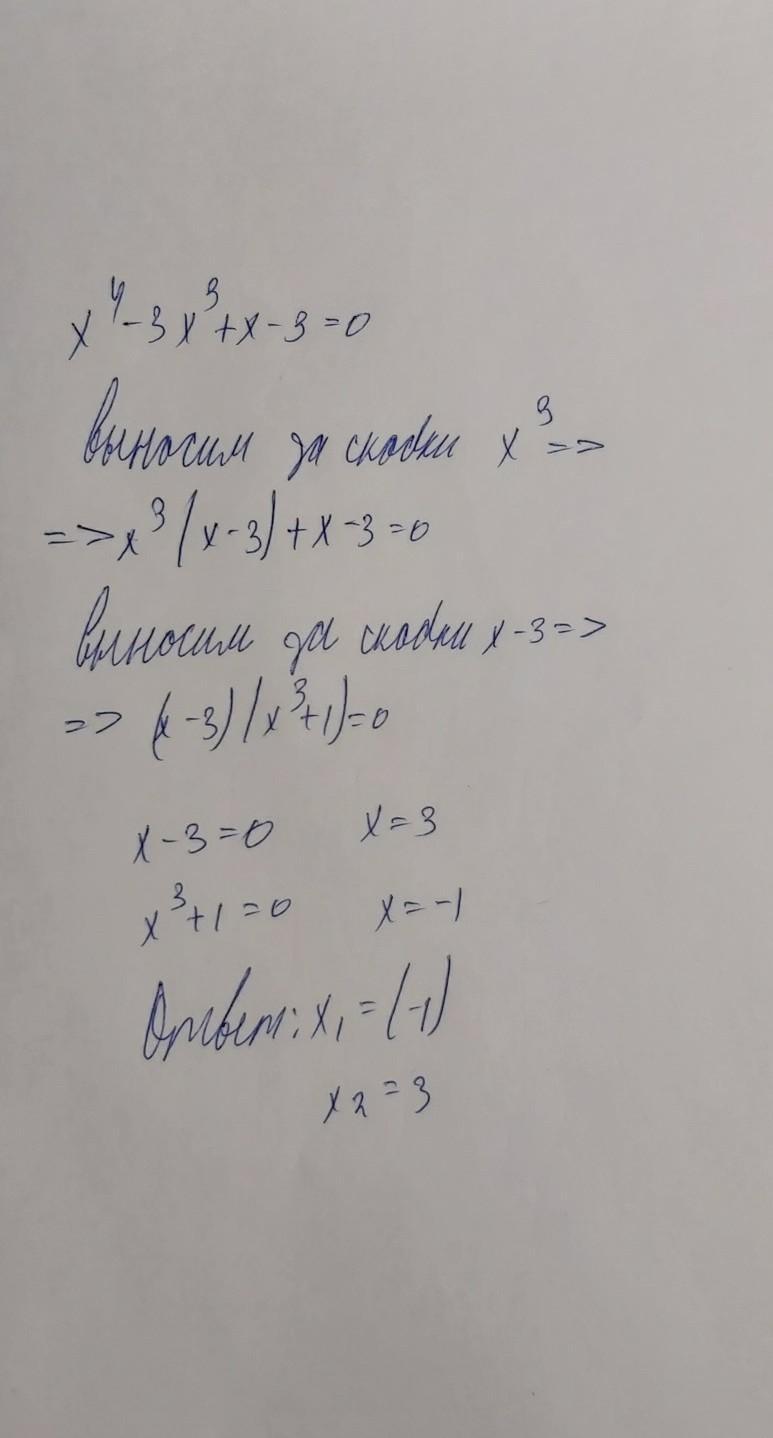 x⁴-3x³+x-3=0
выносим за скобки x³ =>
=> x³(x-3)+x-3=0
выносим за скобки x-3 =>
=> (x-3)(x³+1)=0
x-3=0 x=3
x³+1=0 x=-1
Ответ: x₁=(-1)
x₂=3